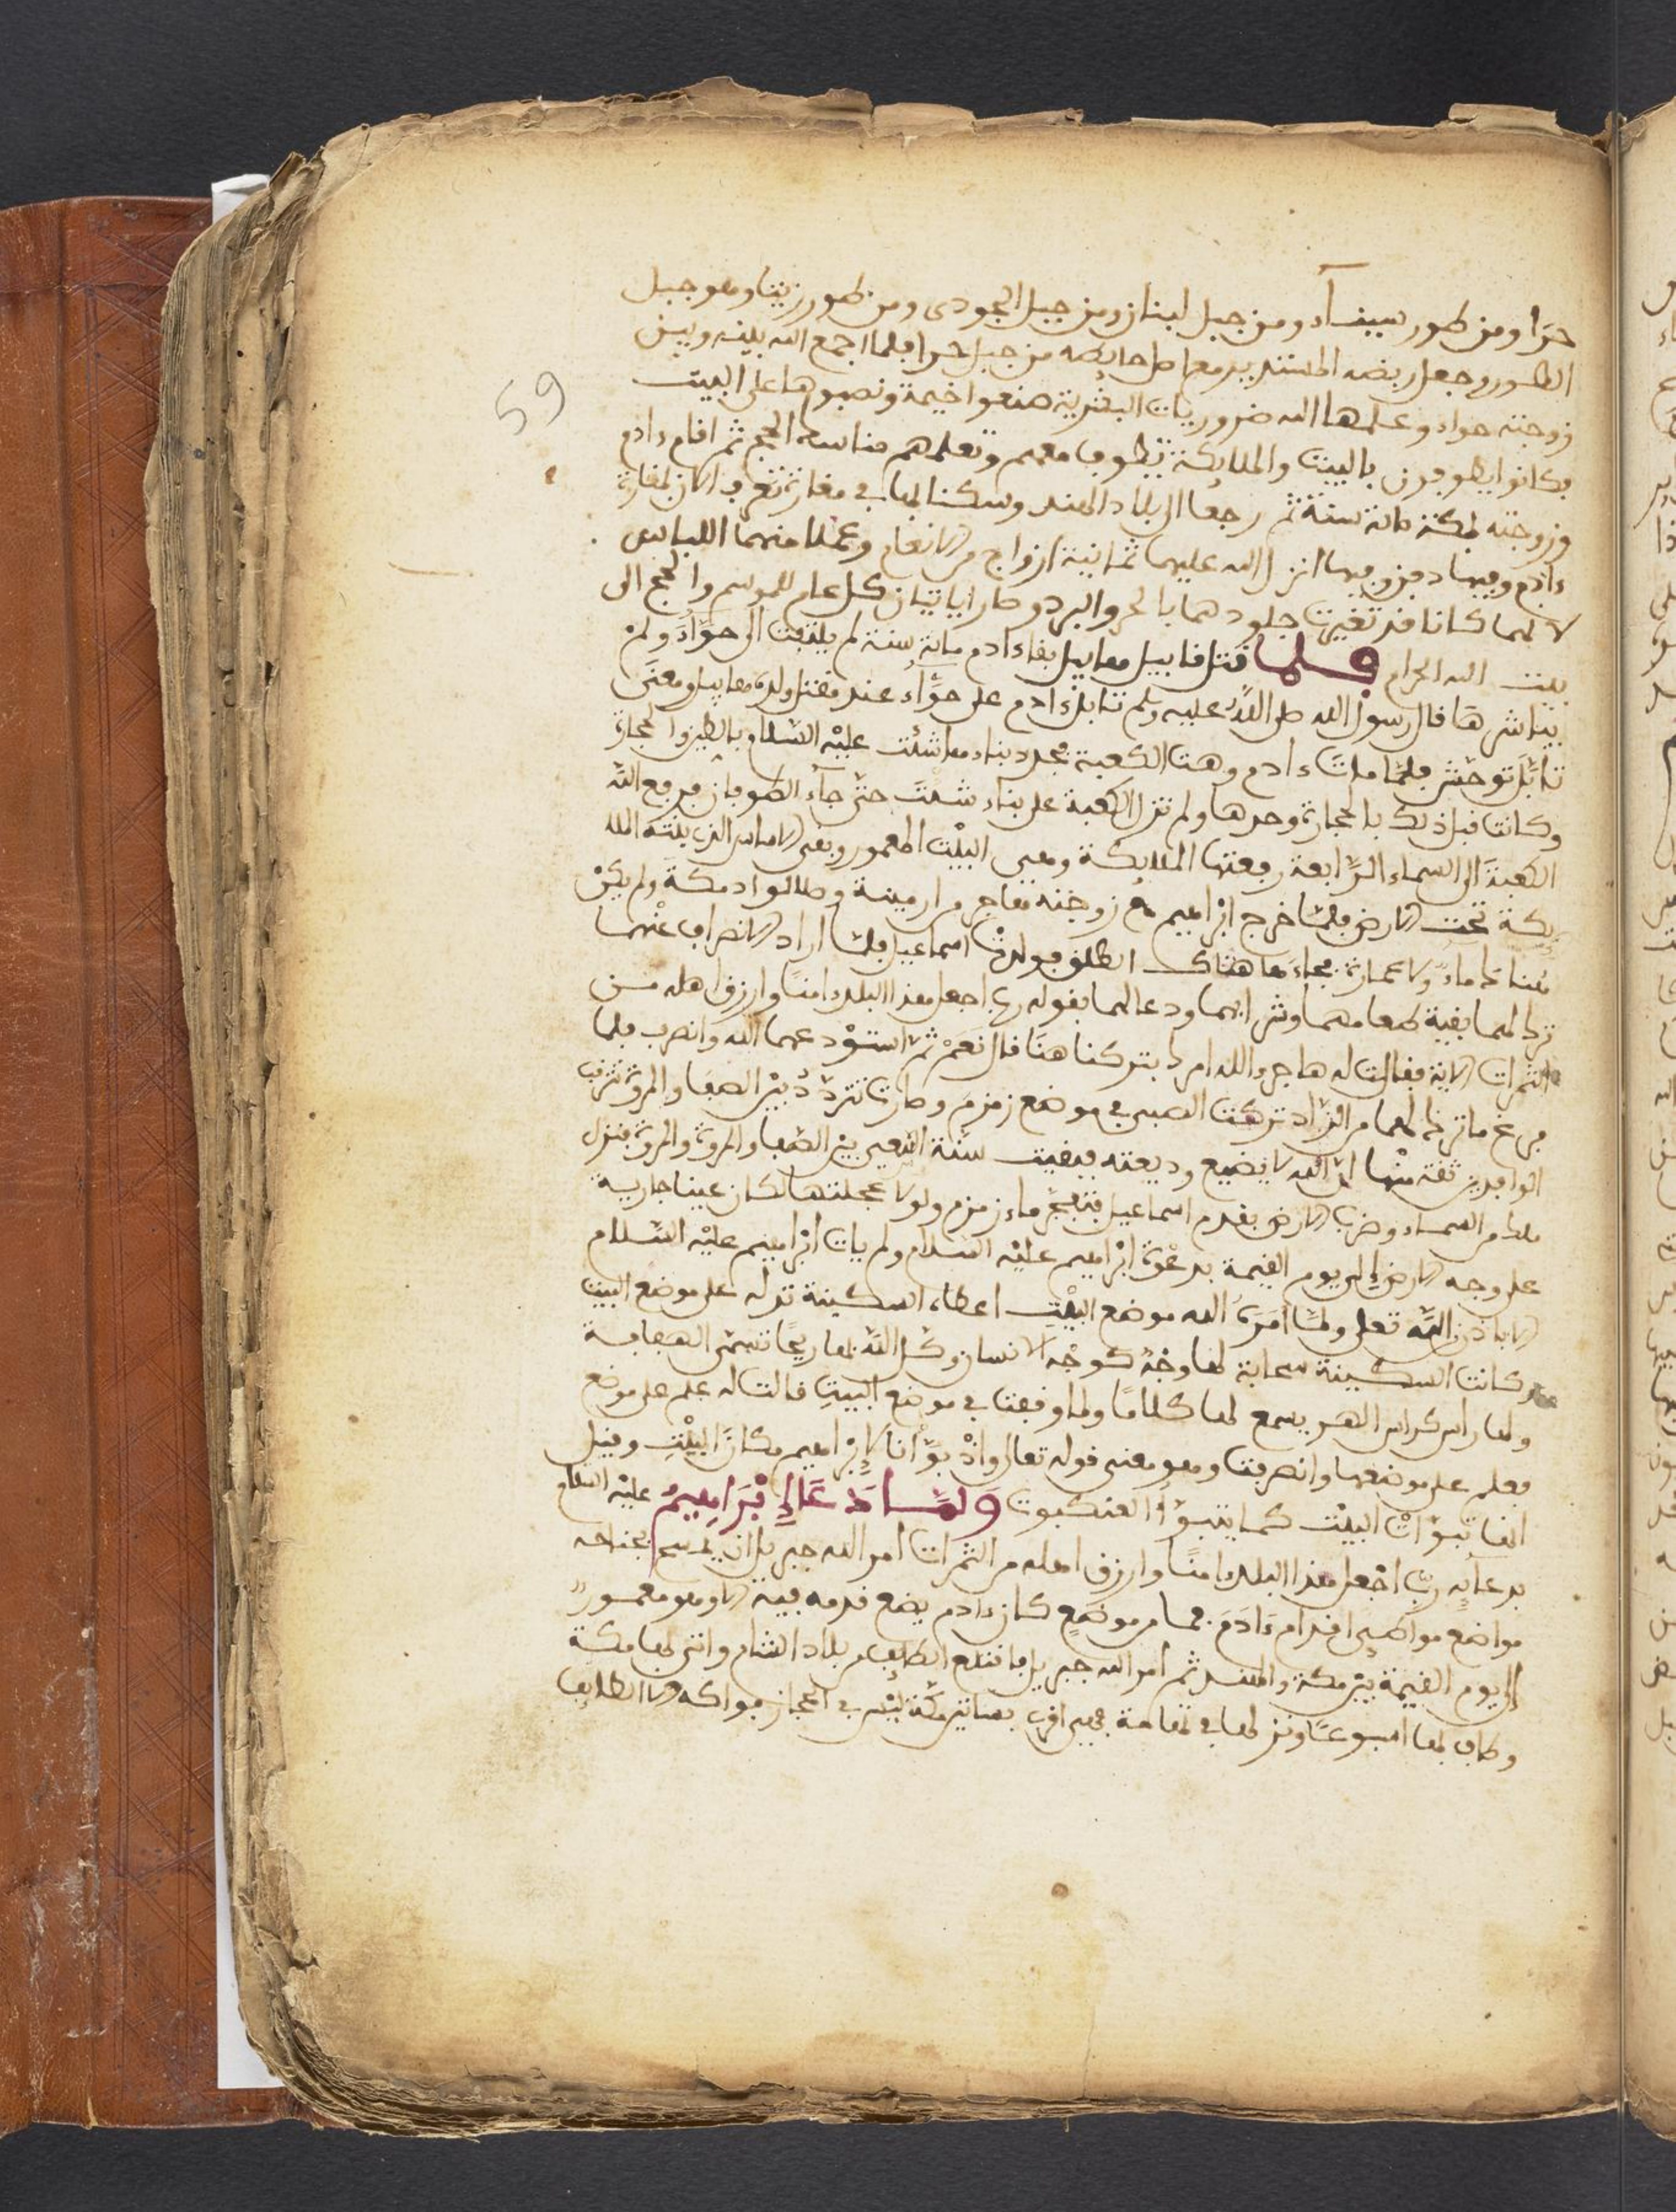 حرا ومن طور سيناء ومن جبل لبنان ومن جبل الجودى ومن طور زيتا وهو جبل
الطور وجعل ربضه المستدير معا حايطه من جبل حرا فلما اجمع الله بينه وبين
زوجته حواء وعلمها الله ضروريات البشرية صنعوا خيمة ونصبوها على البيت
فكانوا يطوفون بالبيت والملايكة تطوف معهم وتعلمهم مناسك الحج ثم اقام ءادم
وزوجته بمكة ماية سنة ثم رجعا الى بلاد الهند وسكنا بها في مغارة تعرف الان بمغارة
ءادم وفيها دفن وفيها انزل الله عليهما ثمانية ازواج من الانعام وعملا منهما اللباس
لانهما كانا قد تغيرت جلودهما بالحر والبرد وصارا ياتيان كل عام للموسم والحج الى
بيت الله الحرام فلما قتل قابيل هابيل بقا ءادم ماية سنة لم يلتفت الى حواء ولم
يباشرها قال رسول الله صلى الله عليه وسلم تابل ءادم على حواء عند مقتل ولده هابيل ومعنى
تابل توحش فلما مات ءادم وهت الكعبة فجدد بناءها شئت عليه السلام بالطين والحجارة
وكانت قبل ذلك بالحجارة وحدها ولم تزل الكعبة على بناء شئت حتى جاء الطوفان فرفع الله
الكعبة الى السماء الرابعة رفعتها الملايكة وهى البيت المعمور وبقى الاساس الذى بنته الملا
يكة تحت الارض فلما خرج ابراهيم مع زوجته هاجر من ارمينة وطلا لوا مكة ولم يكن
هناك ماء ولا عمارة فجاءها هناك الطلق فولدت اسماعيل فلما اراد الانصراف عنهما
ترك لهما بقية طعامهما وشرابهما ودعا لهما بقوله رب اجعل هذا البلد ءامنا وارزق اهله من
الثمرات الاية فقالت له هاجر ءالله امرك بتركنا هنا قال نعم ثم استودعهما الله وانصرف فلما
فرغ ما ترك لهما من الزاد تركت الصبي في موضع زمزم وصارت تتردد بين الصفا والمروة ترقب
الوافدين ثقة منها ان الله لا يضيع وديعته فبقيت سنة السعي بين الصفا والمروة والمروة فنزل
ملك من السماء وضرب الارض بقدم اسماعيل فتفجر ماء زمزم ولولا عجلتها لكان عينا جارية
على وجه الارض الى يوم القيمة بدعوة ابراهيم عليه السلام ولم يات ابراهيم عليه السلام
الا باذن الله تعلى ولما امره الله موضع البيت اعطاه السكينة تدله على موضع البيت
وكانت السكينة سحابة لها وجه كوجه الانسان وكل الله بها ريحا تسمى الهفافة
ولها راس كراس الهر يسمع لها كلاما ولما وقفت في موضع البيت قالت له علم على موضع
فعلم على موضعها وانصرفت وهو معنى قوله تعالى واذ بوأنا لإبراهيم مكان البيت وقيل
انها تبوأت البيت كما يتبوأ العنكبوت ولما دعا إبراهيم عليه السلم
بدعآيه رب اجعل هذا البلد ءامنا وارزق اهله من الثمرات امر الله جبريل ان يمسح بجناحه
مواضع مواطىء اقدام ءادم فما من موضع كان ءادم يضع قدمه فيه الا وهو معمور
الى يوم القيمة بين مكة والهند ثم امر الله جبريل فاقتلع الطايف من بلاد الشام واتى بها مكة
وطاف بها اسبوعا ونزلها في تهامة فهي اقرب بساتين مكة ليس في الحجاز فواكه الا الطايف
59